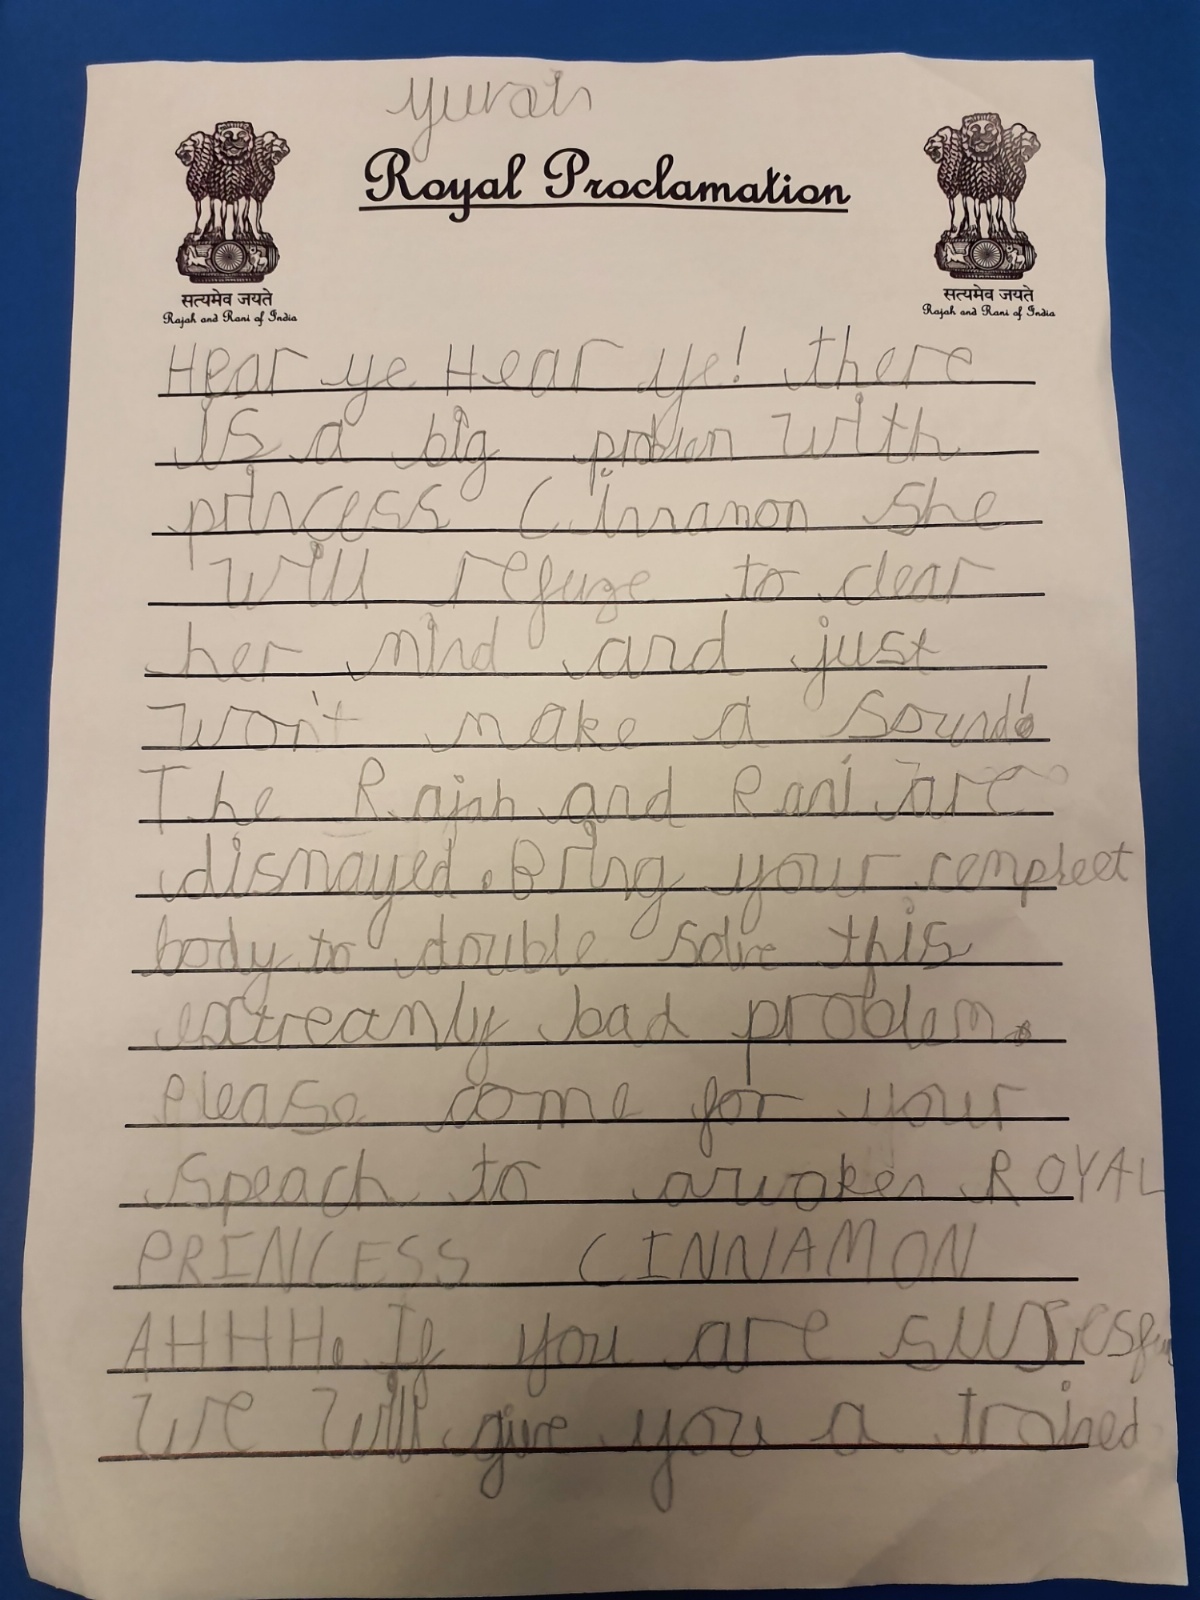 Yuvan
Royal Proclamation
सत्यमेव जयते
Rajah and Rani of India
सत्यमेव जयते
Rajah and Rani of India
Hear ye Hear ye! there
is a big problem with
princess Cinnamon she
will refuze to clear
her mind and just
won't make a sound!
The Rajah and Rani are
dismayed. Bring your compleet
body to double solve this
extreamly bad problem.
Please come for your
Speach to awaken ROYAL
PRINCESS CINNAMON
AHHHH. If you are
we will give you a trained